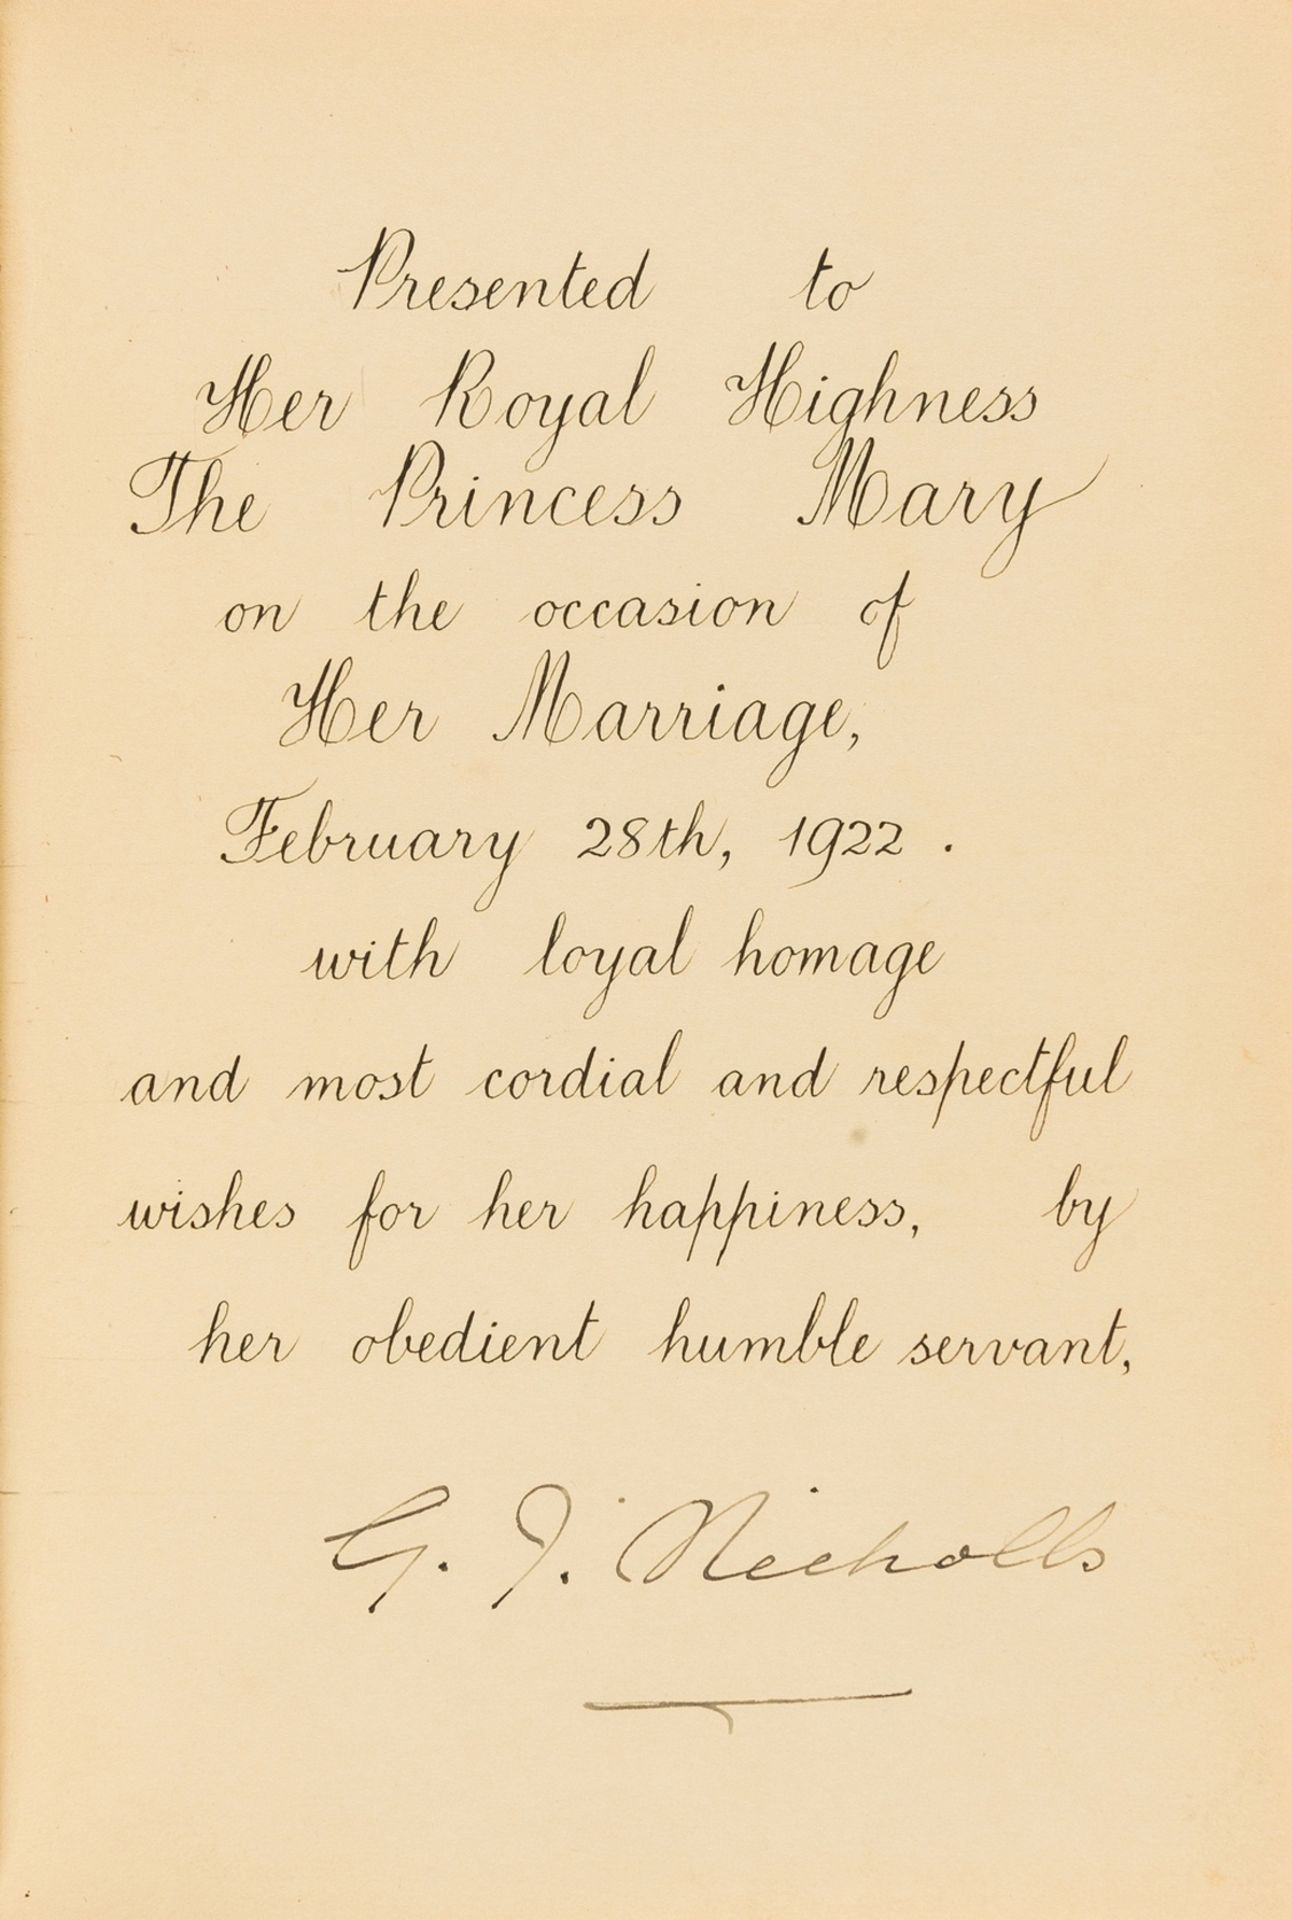 Presented to
Her Royal Highness
The Princess Mary
on the occasion of
Her Marriage,
February 28th, 1922.
with loyal homage
and most cordial and respectful
wishes for her happiness, by
her obedient humble servant,
G. J. Nicholls